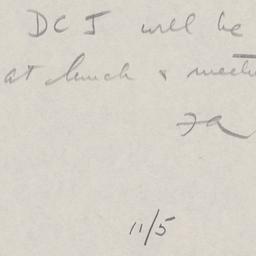 DCJ will be
at lunch & meeti
FA
11/5